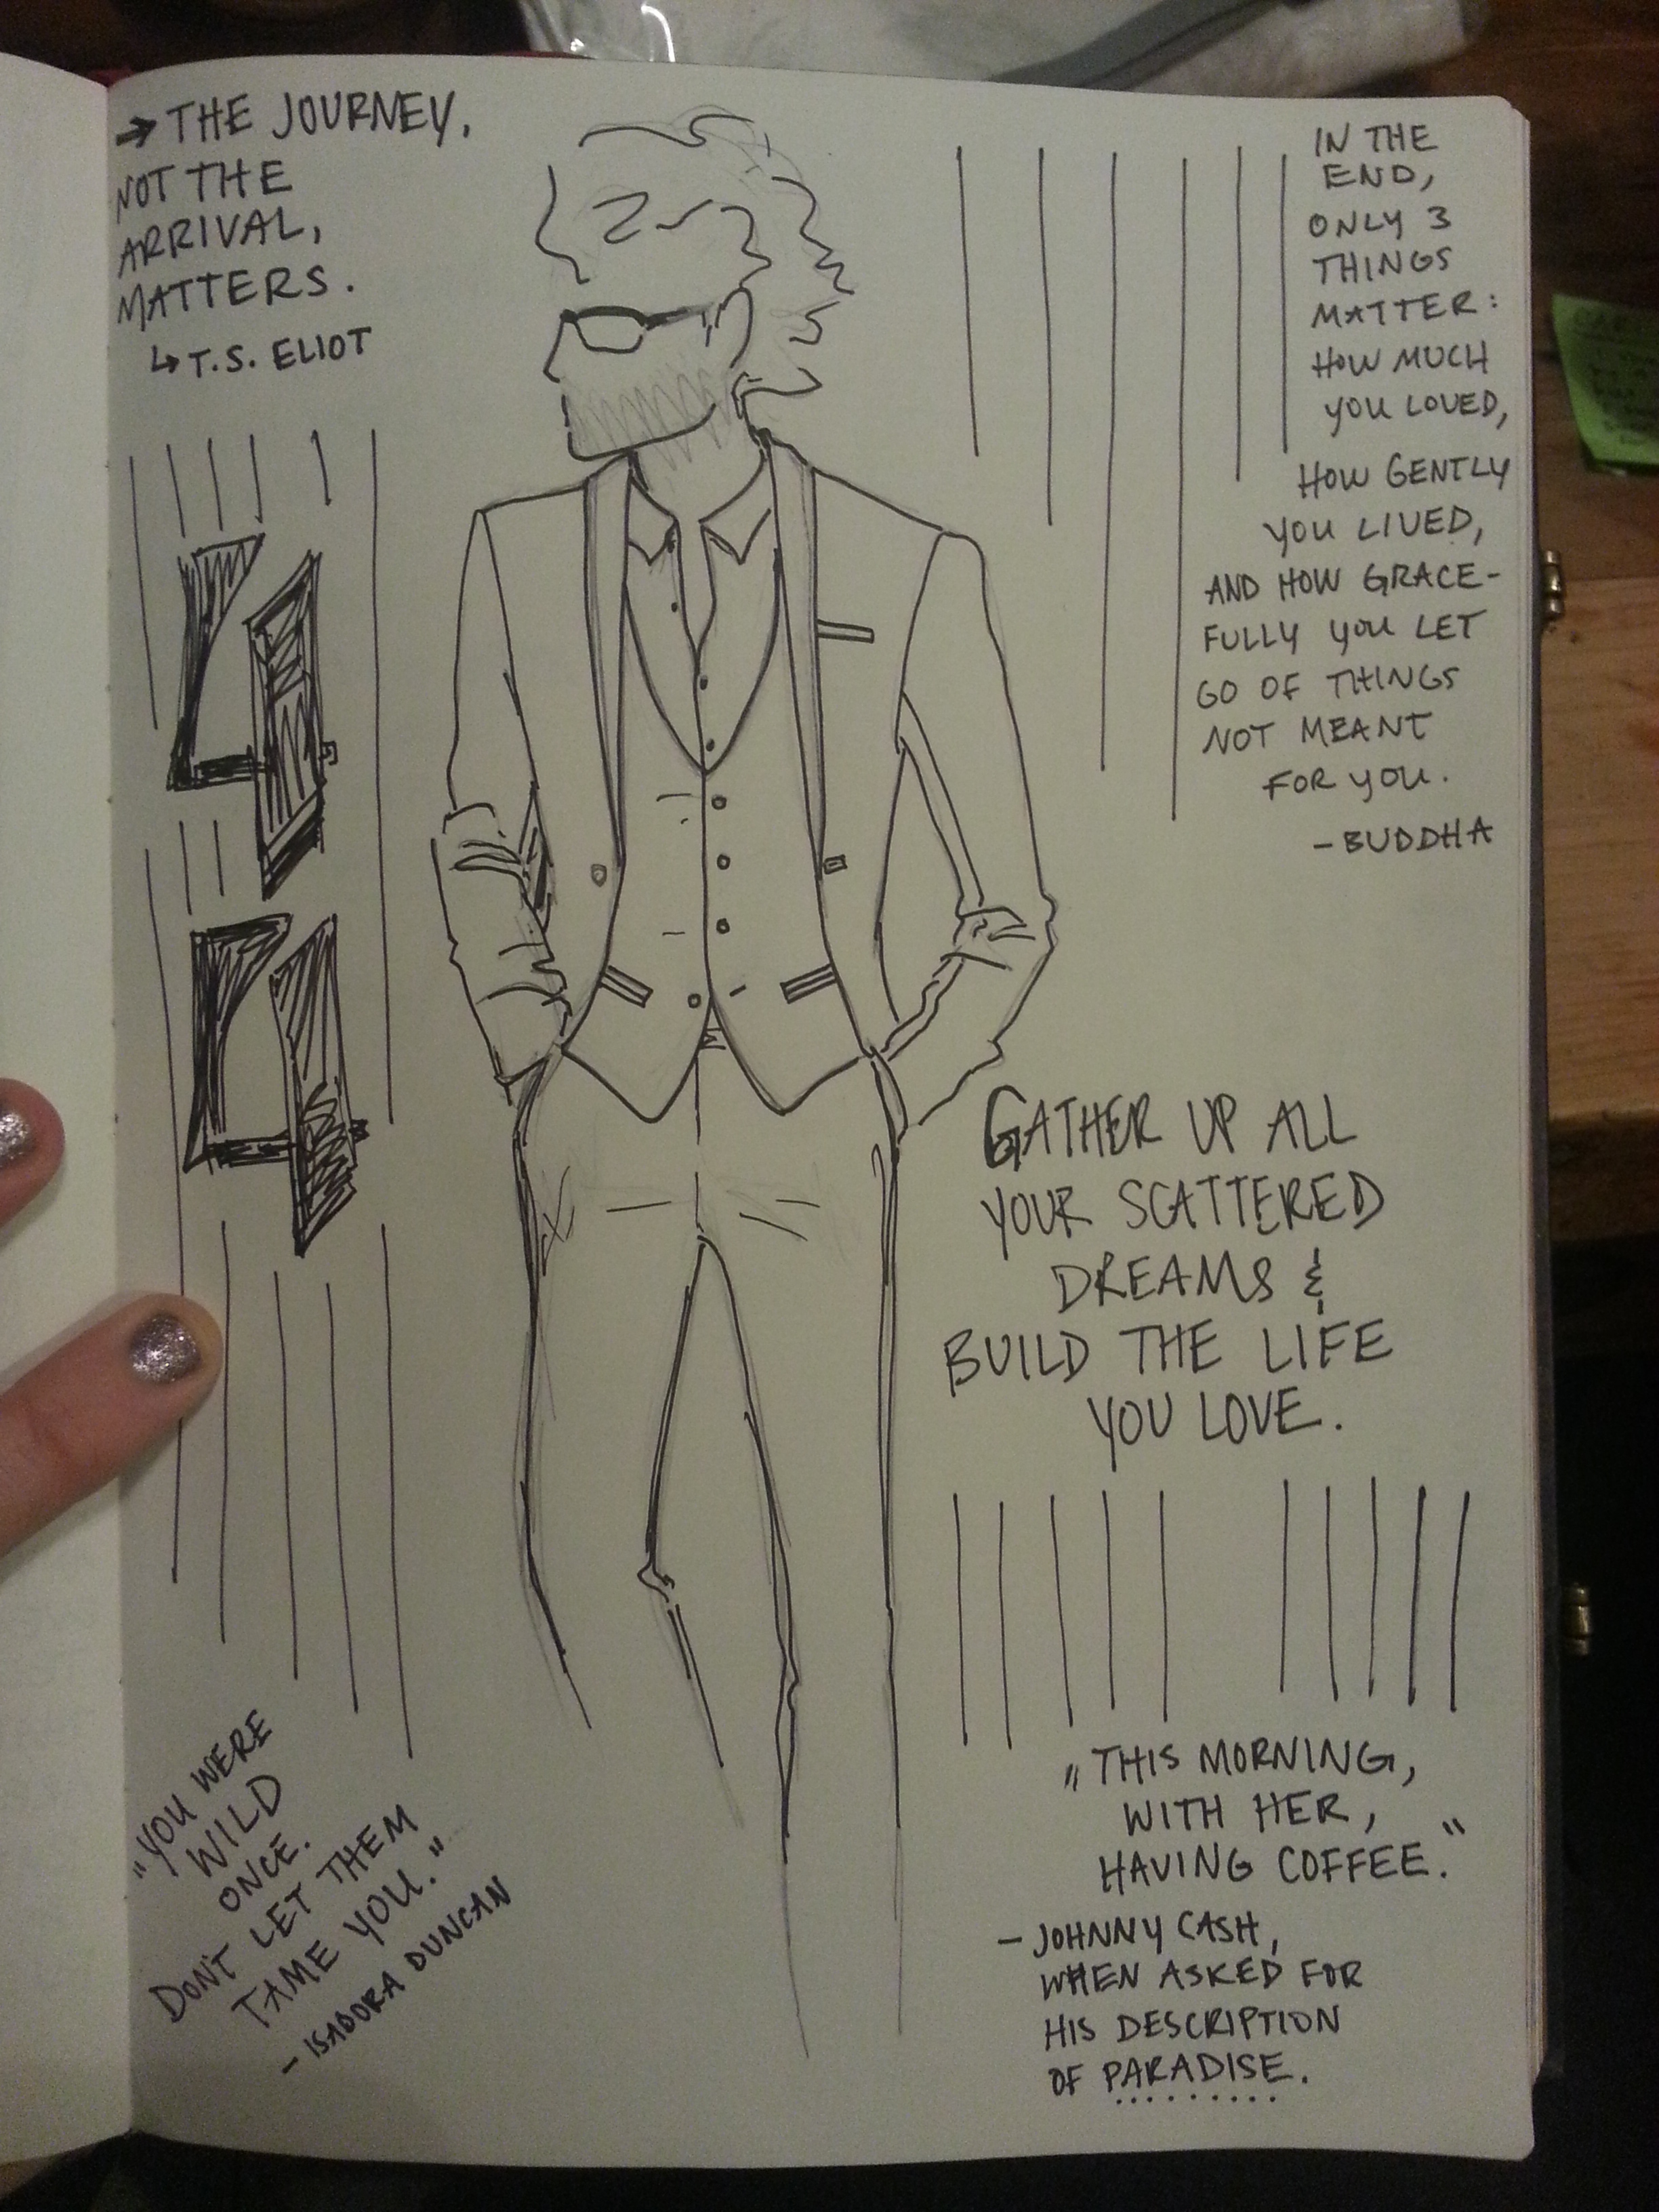 → THE JOURNEY,
NOT THE
ARRIVAL,
MATTERS.
↳ T.S. ELIOT
IN THE
END,
ONLY 3
THINGS
MATTER:
HOW MUCH
YOU LOVED,
HOW GENTLY
YOU LIVED,
AND HOW GRACE-
FULLY YOU LET
GO OF THINGS
NOT MEANT
FOR YOU.
- BUDDHA
GATHER UP ALL
YOUR SCATTERED
DREAMS &
BUILD THE LIFE
YOU LOVE.
"YOU WERE
WILD
ONCE.
DON'T LET THEM
TAME YOU."
- ISADORA DUNCAN
"THIS MORNING,
WITH HER,
HAVING COFFEE."
- JOHNNY CASH,
WHEN ASKED FOR
HIS DESCRIPTION
OF PARADISE.